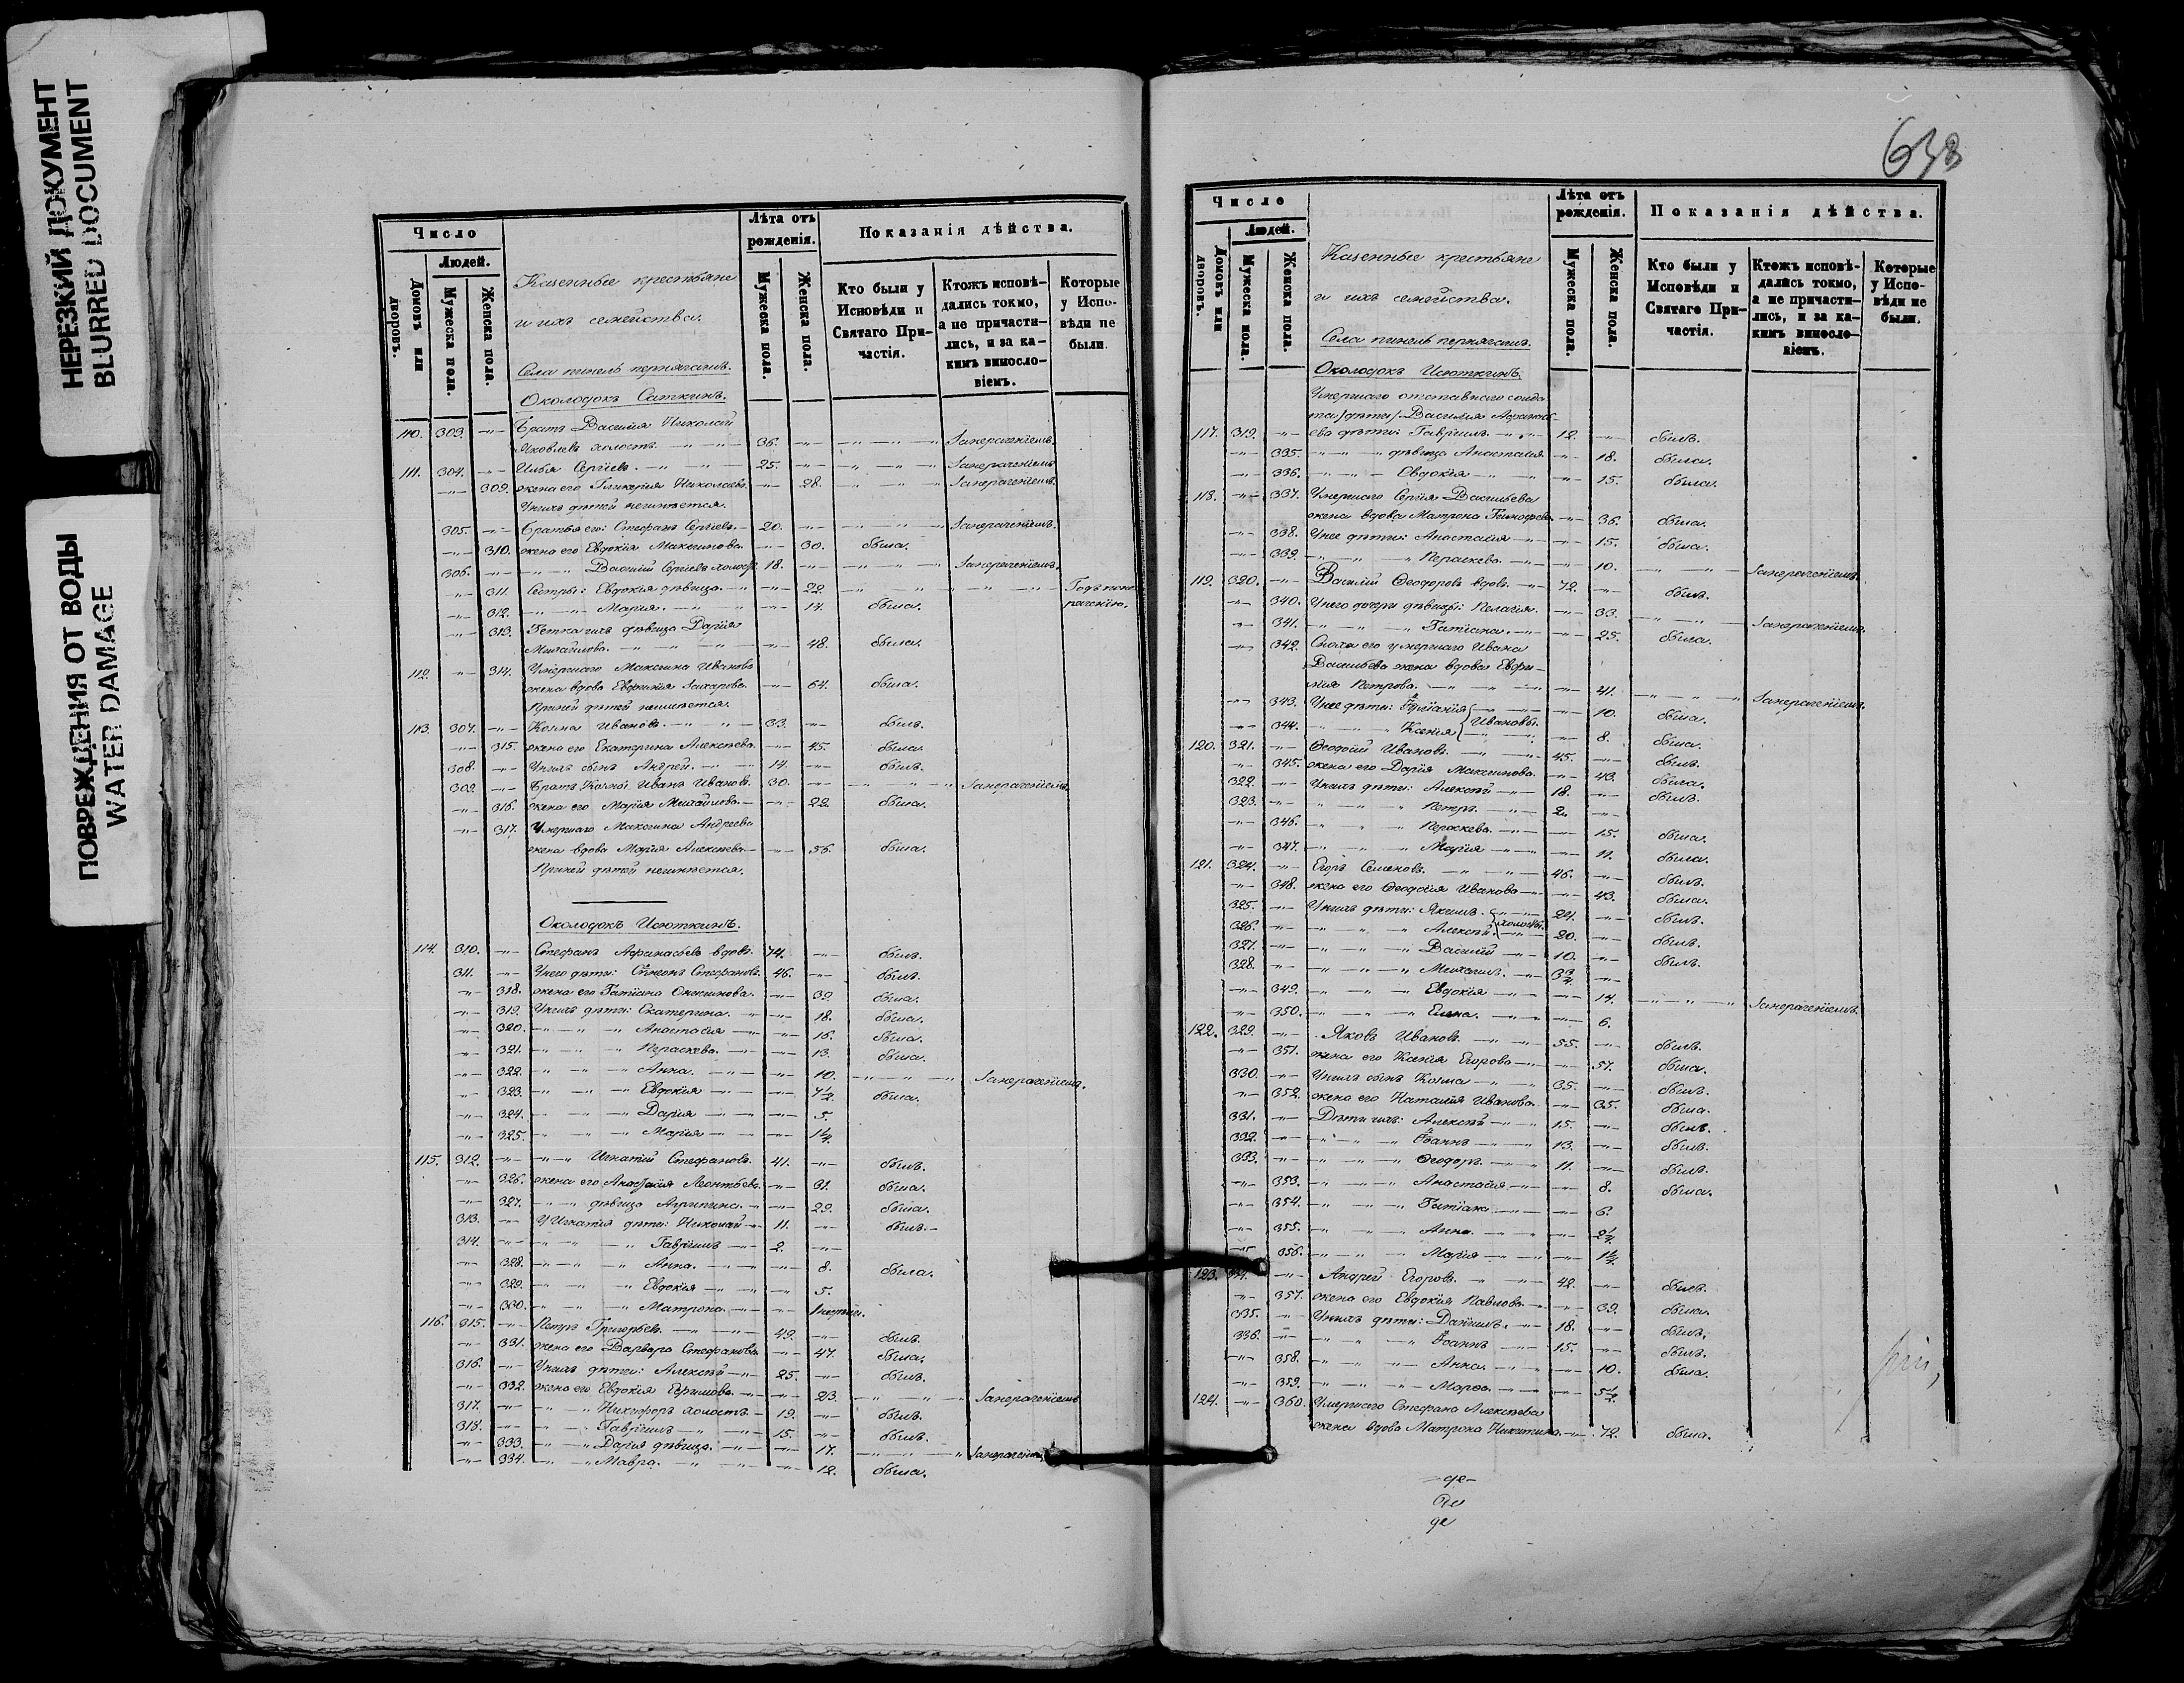 НЕРЕЗКИЙ ДОКУМЕНТ
BLURRED DOCUMENT
ПОВРЕЖДЕНИЯ ОТ ВОДЫ
WATER DAMAGE
Число
Людей.
Домовъ или дворовъ.
Мужеска пола.
Женска пола.
Казенные крестьяне
и ихъ семейства.
Села
Околодокъ Саткинъ.
Лѣта отъ рожденія.
Мужеска пола.
Женска пола.
Показанія дѣйства.
Кто были у Исповѣди и Святаго Причастія.
Ктожъ исповѣдались токмо, а не причастились, и за какимъ винословіемъ.
Которые у Исповѣди не были.
110. 303. -"- Братъ Василія Николай
Яковлевъ холостъ 36.
111. 304. -"- Илья Сергіевъ. 25.
-"- 309. жена его Гликерія Николаева. 28.
У нихъ дѣтей неимѣется.
305. -"- Братья его: Стефанъ Сергіевъ. 20.
-"- 310. жена его Евдокія Максимова. 30. была.
306. -"- Василій Сергіевъ холостъ 18.
-"- 311. Сестры: Евдокія дѣвица 22.
-"- 312. Марія. 14. была.
-"- 313. Тетка ихъ дѣвица Дарія
Михайлова. 48. была.
112. -"- 314. Умершаго Максима Иванова
жена вдова Евфимія Захарова. 64. была.
При ней дѣтей неимѣется.
113. 307. -"- Козма Ивановъ. 33. былъ.
-"- 315. жена его Екатерина Алексѣева. 45. была.
308. -"- У нихъ сынъ Андрей. 14. былъ.
309. -"- Братъ Козмы Иванъ Ивановъ. 30.
-"- 316. жена его Марія Михайлова. 22. была.
-"- 317. Умершаго Максима Андреева
жена вдова Марія Алексѣева. 56. была.
При ней дѣтей неимѣется.
Околодокъ Исюткинъ.
114. 310. -"- Стефанъ Афанасьевъ вдовъ. 74. былъ.
311. -"- У него дѣти: Сѵмеонъ Стефановъ. 46. былъ.
-"- 318. жена его Татіана Онисимова. 39. была.
-"- 319. У нихъ дѣти: Екатерина. 18. была.
-"- 320. Анастасія 16. была.
-"- 321. Параскева. 13. была.
-"- 322. Анна. 10.
-"- 323. Евдокія 7½ была.
-"- 324. Дарія 5.
-"- 325. Марія 1¼
115. 312. -"- Игнатій Стефановъ. 41. былъ.
-"- 326. жена его Анастасія Леонтьева. 31. была.
-"- 327. дѣвица Агрипина. 29. была.
313. -"- У Игнатія дѣти: Николай 11. былъ.
314. -"- Гавріилъ 2.
-"- 328. Анна. 8. была.
-"- 329. Евдокія 5.
-"- 330. Матрона.
116. 315. -"- Петръ Григорьевъ. 49. былъ.
-"- 331. жена его Варвара Стефанова. 47. была.
316. -"- У нихъ дѣти: Алексѣй 25. былъ.
-"- 332. жена его Евдокія Ефимова. 23.
317. -"- Никифоръ холостъ. 19. былъ.
318. -"- Гавріилъ 15. былъ.
-"- 333. Дарія дѣвица. 17.
-"- 334. Мавра. 12. была.
638
Число
Людей.
Домовъ или дворовъ.
Мужеска пола.
Женска пола.
Казенные крестьяне
и ихъ семейства.
Села
Околодокъ Исюткинъ.
Лѣта отъ рожденія.
Мужеска пола.
Женска пола.
Показанія дѣйства.
Кто были у Исповѣди и Святаго Причастія.
Ктожъ исповѣдались токмо, а не причастились, и за какимъ винословіемъ.
Которые у Исповѣди не были.
Умершаго отставнаго солда
та /дѣти/ Василія Афанась
117. 319. -"- ева дѣти: Гавріилъ 12. былъ.
-"- 335. дѣвица Анастасія 18. была.
-"- 336. Евдокія 15. была.
118. -"- 337. Умершаго Сергія Васильева
жена вдова Матрона Тимофеева 36. была.
-"- 338. У нее дѣти: Анастасія 15. была.
-"- 339. Параскева. 10.
119. 320. -"- Василій Ѳеодоровъ вдовъ. 72. былъ.
-"- 340. У него дочери дѣвицы: Пелагія. 33.
-"- 341. Татіана. 25. была.
-"- 342. Сноха его умершаго Ивана
Васильева жена вдова Евфи-
мія Петрова. 41.
-"- 343. У нее дѣти: 10. была.
-"- 344. Ксенія Ивановы. 8. была.
120. 321. -"- Ѳеодосій Ивановъ. 45. былъ.
-"- 345. жена его Дарія Максимова. 43. была.
322. -"- У нихъ дѣти: Алексѣй 18. былъ.
323. -"- Петръ. 2.
-"- 346. Параскева. 15. была.
-"- 347. Марія 11. была.
121. 324. -"- Егоръ Семеновъ. 46. былъ.
-"- 348. жена его Ѳеодосія Иванова 43. была.
325. -"- У нихъ дѣти: Якимъ. 24. былъ.
326. -"- Алексѣй. холосты. 20. былъ.
327. -"- Василій 10. былъ.
328. -"- Михаилъ. 3¾
-"- 349. Евдокія 14.
-"- 350. Елена. 6.
122. 329. -"- Яковъ Ивановъ. 55. былъ.
-"- 351. жена его Ксенія Егорова 57. была.
330. -"- У нихъ сынъ Козма 35. былъ.
-"- 352. жена его Наталія Иванова. 35. была.
331. -"- Дѣти ихъ: Алексѣй 15. былъ.
332. -"- Іоаннъ 13. былъ.
333. -"- Ѳеодоръ. 11. былъ.
-"- 353. Анастасія 8. была.
-"- 354. Татіана. 6.
-"- 355. Анна. 2¼
-"- 356. Марія 1¼
123. 334. -"- Андрей Егоровъ. 42. былъ.
-"- 357. жена его Евдокія Павлова. 39. была.
335. -"- У нихъ дѣти: Даніилъ. 18. былъ.
336. -"- Іоаннъ 15. былъ.
-"- 358. Анна. 10. была.
-"- 359. Марѳа. 5½
124. -"- 360. Умершаго Стефана Алексѣева
жена вдова Матрона Никитина. 72. была.